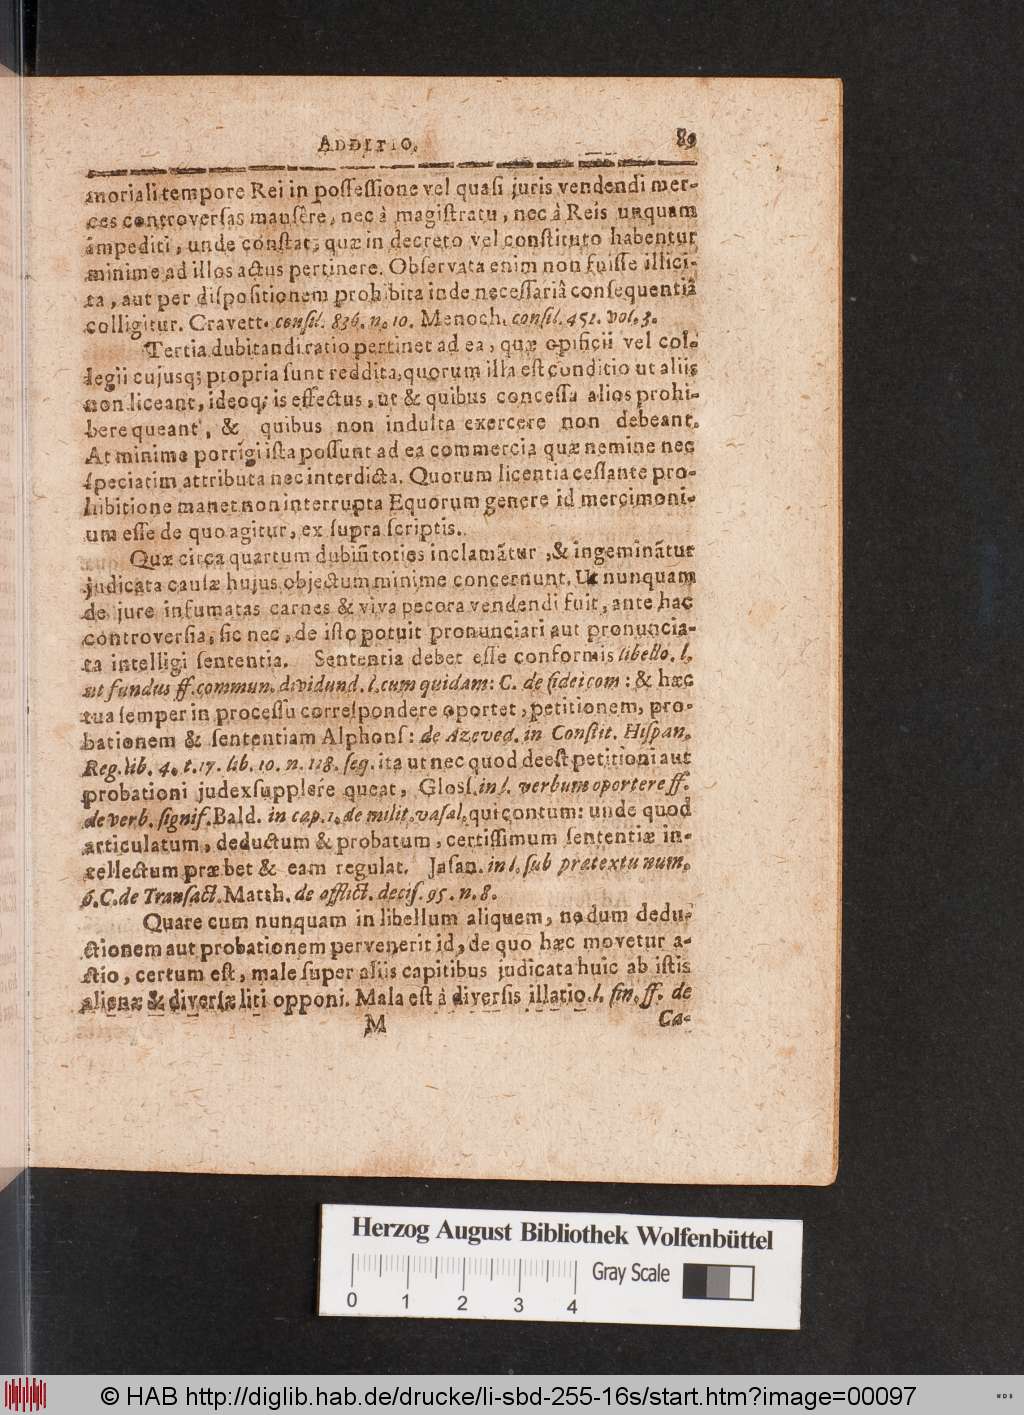 ADDITIO. 89
moriali tempore Rei in possessione vel quasi juris vendendi mer-
ces controversas mansêre, nec à magistratu, nec à Reis unquam
impediti, unde constat; quæ in decreto vel constituto habentur,
minime ad illos actus pertinere. Observata enim non fuisse illici-
ta, aut per dispositionem prohibita inde necessariâ consequentiâ
colligitur. Cravett. consil. 836. n. 10. Menoch. consil. 451. vol. 3.
Tertia dubitandi ratio pertinet ad ea, quæ opificii vel col-
legii cujusq; propria sunt reddita, quorum illa est conditio ut aliis
non liceant, ideoq; is effectus, ut & quibus concessa alios prohi-
bere queant, & quibus non indulta exercere non debeant.
At minime porrigi ista possunt ad ea commercia quæ nemine nec
speciatim attributa nec interdicta. Quorum licentia cessante pro-
hibitione manet non interrupta Equorum genere id mercimoni-
um esse de quo agitur, ex supra scriptis.
Quæ circa quartum dubiũ toties inclamãtur, & ingeminãtur
judicata causæ hujus objectum minime concernunt. Ut nunquam
de jure infumatas carnes & viva pecora vendendi fuit, ante hac
controversia, sic nec, de isto potuit pronunciari aut pronuncia-
ta intelligi sententia. Sententia debet esse conformis libello. l.
ut fundus ff. commun. dividund. l. cum quidam: C. de fideicom: & hæc
tua semper in processu correspondere oportet, petitionem, pro-
bationem & sententiam Alphons: de Azeved. in Constit. Hispan.
Reg. lib. 4. t. 17. lib. 10. n. 118. seq. ita ut nec quod deest petitioni aut
probationi judex supplere queat, Gloss. in l. verbum oportere ff.
de verb. signif. Bald. in cap. 1. de milit. vasal. qui contum: unde quod
articulatum, deductum & probatum, certissimum sententiæ in-
tellectum præbet & eam regulat. Jasan. in l. sub prætextu num.
6. C. de Transact. Matth. de afflict. decis. 95. n. 8.
Quare cum nunquam in libellum aliquem, nedum dedu-
ctionem aut probationem pervenerit id, de quo hæc movetur a-
ctio, certum est, male super aliis capitibus judicata huic ab istis
alienæ & diversæ liti opponi. Mala est à diversis illatio. l. fin. ff. de
M Ca-
Herzog August Bibliothek Wolfenbüttel
0 1 2 3 4 Gray Scale
© HAB http://diglib.hab.de/drucke/li-sbd-255-16s/start.htm?image=00097
WDB